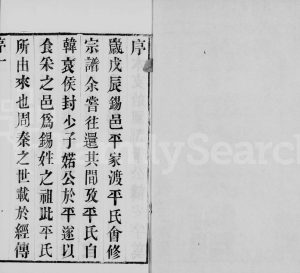 序
歲戊辰錫邑平家渡平氏會修
宗譜余嘗往還其間攷平氏自
韓哀侯封少子婼公於平遂以
食采之邑爲錫姓之祖此平氏
所由來也周秦之世載於經傳
序一
FamilySearch